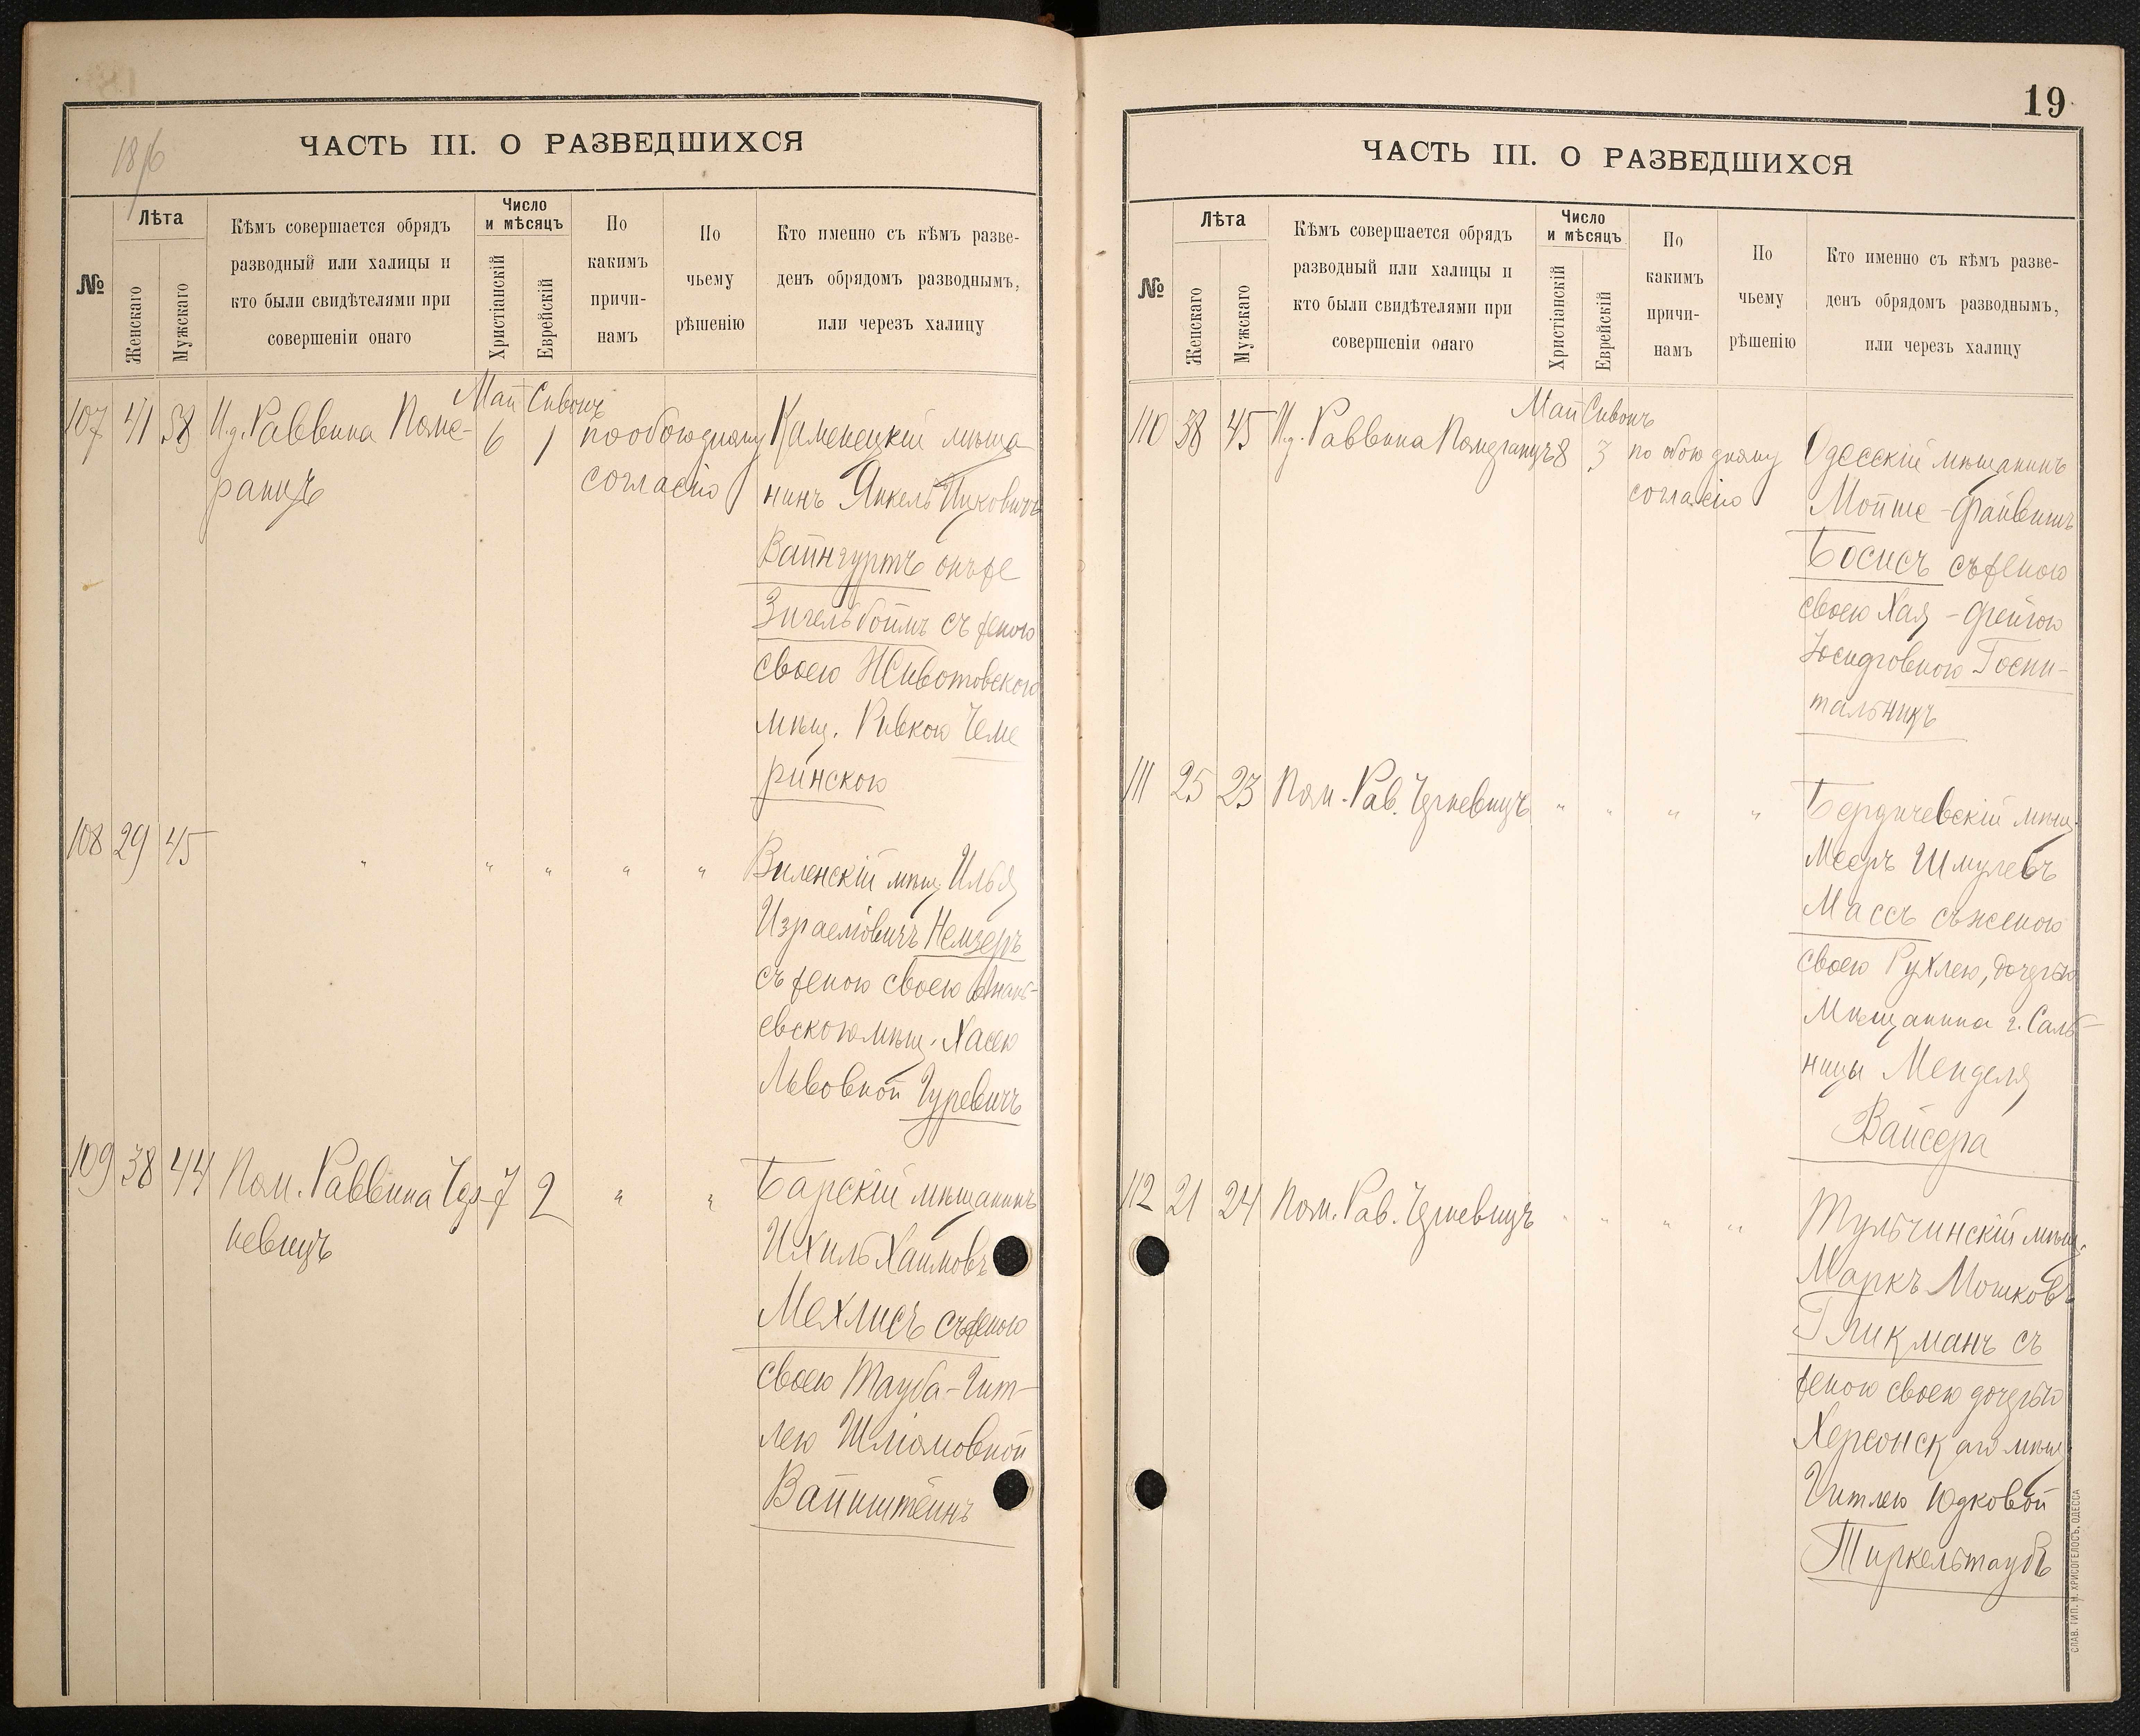 18/6
ЧАСТЬ III. О РАЗВЕДШИХСЯ
№
Лѣта
Женскаго
Мужскаго
Кѣмъ совершается обрядъ
разводный или халицы и
кто были свидѣтелями при
совершеніи онаго
Число
и мѣсяцъ
Христіанскій
Еврейскій
По
какимъ
причи-
намъ
По
чьему
рѣшенію
Кто именно съ кѣмъ разве-
денъ обрядомъ разводнымъ,
или черезъ халицу
Май Сивонъ
107 41 58 И.д. Раввина Поме- 6 1 по обоюдному Каменецкій мѣща-
ранцъ согласію нинъ Янкель Ицковичъ
Вайнгуртъ онъ же
Зигельбоймъ съ женою
своею Животовскою
мѣщ. Ривкою Чеме
ринскою
108 29 45 " " " " " Виленскій мѣщ. Илья
Израелiовичъ Немзеръ
съ женою своею Анань-
евскою мѣщ. Хасею
Львовной Гуревичъ
109 38 44 Пом. Раввина Чер- 7 2 " " Барскій мѣщанинъ
невицъ Ихиль Хаимовъ
Мехлисъ съ женою
своею Тауба-Гит-
лею Шліомовной
Вайнштейнъ
19
ЧАСТЬ III. О РАЗВЕДШИХСЯ
№
Лѣта
Женскаго
Мужскаго
Кѣмъ совершается обрядъ
разводный или халицы и
кто были свидѣтелями при
совершеніи онаго
Число
и мѣсяцъ
Христіанскій
Еврейскій
По
какимъ
причи-
намъ
По
чьему
рѣшенію
Кто именно съ кѣмъ разве-
денъ обрядомъ разводнымъ,
или черезъ халицу
Май Сивонъ
110 38 45 И.д. Раввина Померанцъ 8 3 по обоюдному Одесскій мѣщанинъ
согласію Мойше-Файвишъ
Босисъ съ женою
своею Хая-Фейгою
Юсидовною Госпи-
тальникъ
111 25 23 Пом. Рав. Черневицъ " " " " Бердичевскій мѣщ.
Мееръ Шмулевъ
Массъ съ женою
своею Рухлею, дочерью
Мѣщанина г. Саль-
ницы Менделя
Вайсера
112 21 24 Пом. Рав. Черневицъ " " " " Тульчинскій мѣщ.
Маркъ Мошковъ
Гликманъ съ
женою своею дочерью
Херсонскаго мѣщ.
Гитлею Юдковой
Тиркельтаубъ
СЛАВ. ТИП. Н. ХРИСОГЕЛОСЪ, ОДЕССА